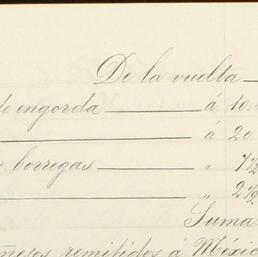 De la vuelta
de engorda á 10.
á 20
borregas " 7 1/2
" 2 1/2
Suma
remitidos á México